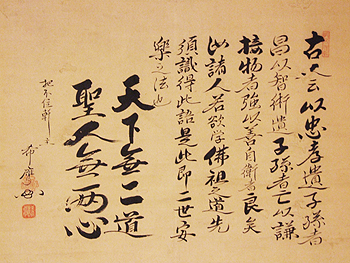 古人云以忠孝遺子孫者
昌以智術遺子孫者亡以謙
接物者強以善自衛者良矣
此諸人若欲学佛祖之道先
須識得此語是此即二世安
樂之法也
天下無二道
聖人無両心